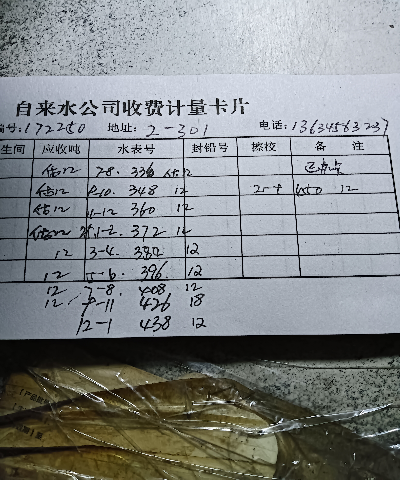 自来水公司收费计量卡片
编号:172250 地址: 2-301 电话:13634563237
生间 应收吨 水表号 封铅号 换校 备 注
估12 7-8. 336 估12
估12 9-10. 348 12 12
估12 11-12 360 12
估12 1-2 372 12
12 3-4. 384 12
12 5-6. 396 12
12 7-8. 408 12
12 9-11 426 18
12-1 438 12